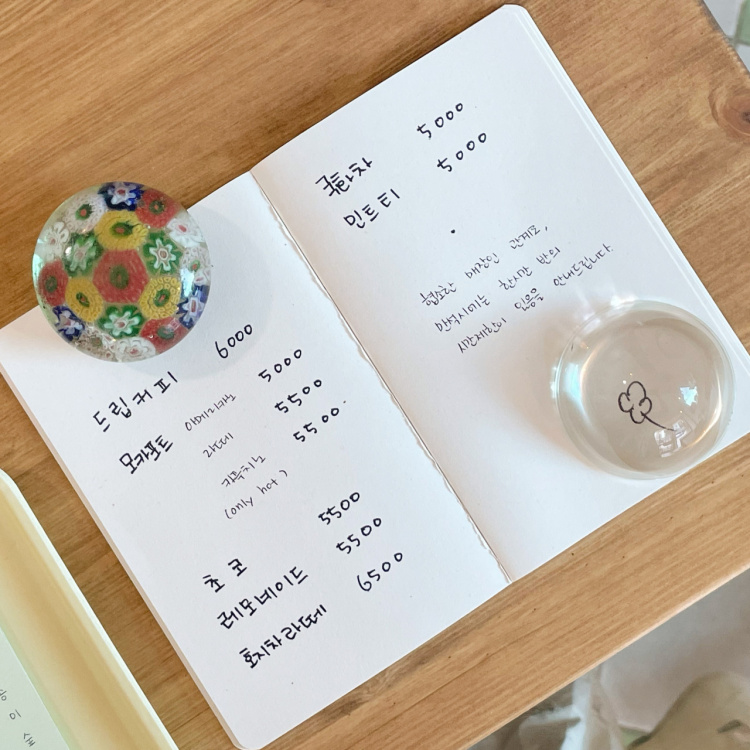 드립커피 6000
모카포트 아메리카노 5000
라떼 5500
카푸치노 5500
(only hot)
초코 5500
레모네이드 5500
호지차라떼 6500
5000
민트티 5000
협소한 매장인 관계로,
만석시에는 한시간 반의
시간제한이 있음을 안내드립니다